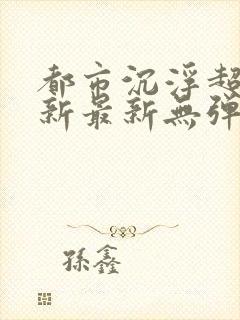 都市沉浮超
新最新無弹
孫鑫